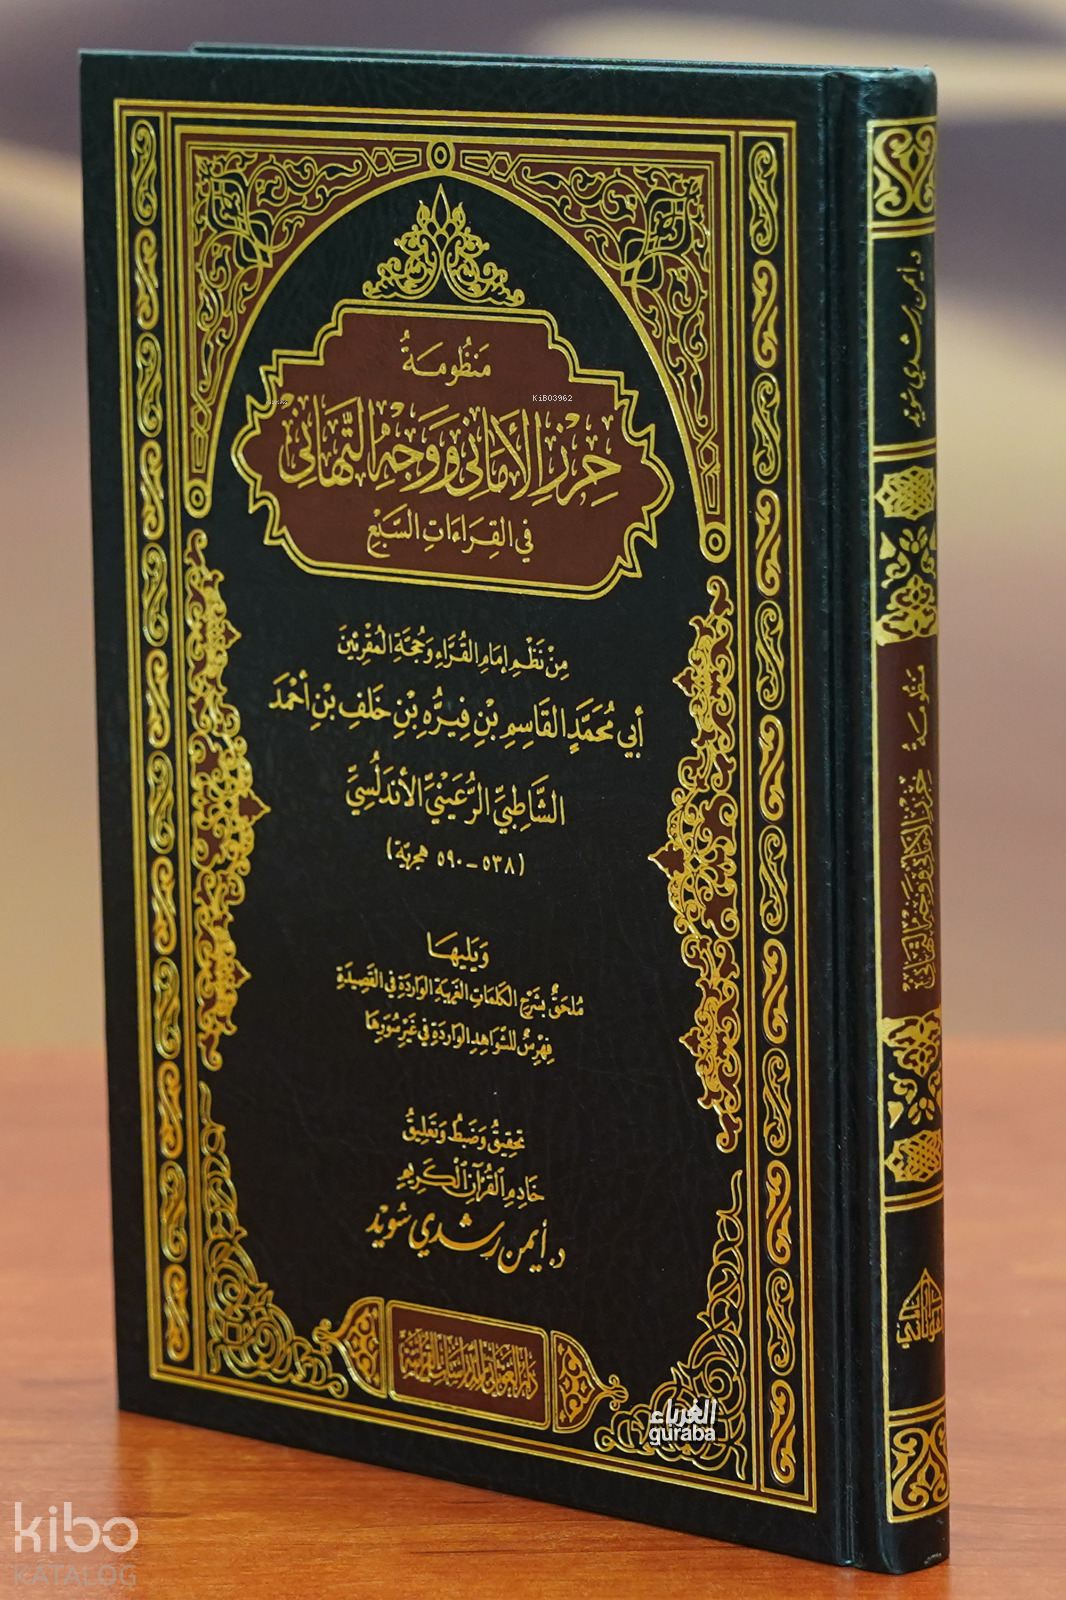 مَنْظُومَةُ
حِرْزِ الْأَمَانِي وَوَجْهِ التَّهَانِي
KiB03962
فِي الْقِرَاءَاتِ السَّبْعِ
مِنْ نَظْمِ إِمَامِ الْقُرَّاءِ وَحُجَّةِ الْمُقْرِئِينَ
أَبِي مُحَمَّدٍ الْقَاسِمِ بْنِ فِيرُّهِ بْنِ خَلَفِ بْنِ أَحْمَدَ
الشَّاطِبِيِّ الرُّعَيْنِيِّ الْأَنْدَلُسِيِّ
(٥٣٨ - ٥٩٠ هجرية)
وَيَلِيهَا
مُلْحَقٌ بِشَرْحِ الْكَلِمَاتِ الْغَرِيبَةِ الْوَارِدَةِ فِي الْقَصِيدَةِ
فِهْرِسٌ لِلشَّوَاهِدِ الْوَارِدَةِ فِي غَيْرِ سُوَرِهَا
تحقِيقُ وَضَبْطُ وَتَعْلِيقُ
خَادِمِ الْقُرْآنِ الْكَرِيمِ
د. أيمن رشدي سويد
دار الغوثاني للدراسات القرآنية
د. أيمن رشدي سويد
منظومة حرز الأماني ووجه التهاني
دار الغوثاني
الغرباء
guraba
kibo
KATALOG